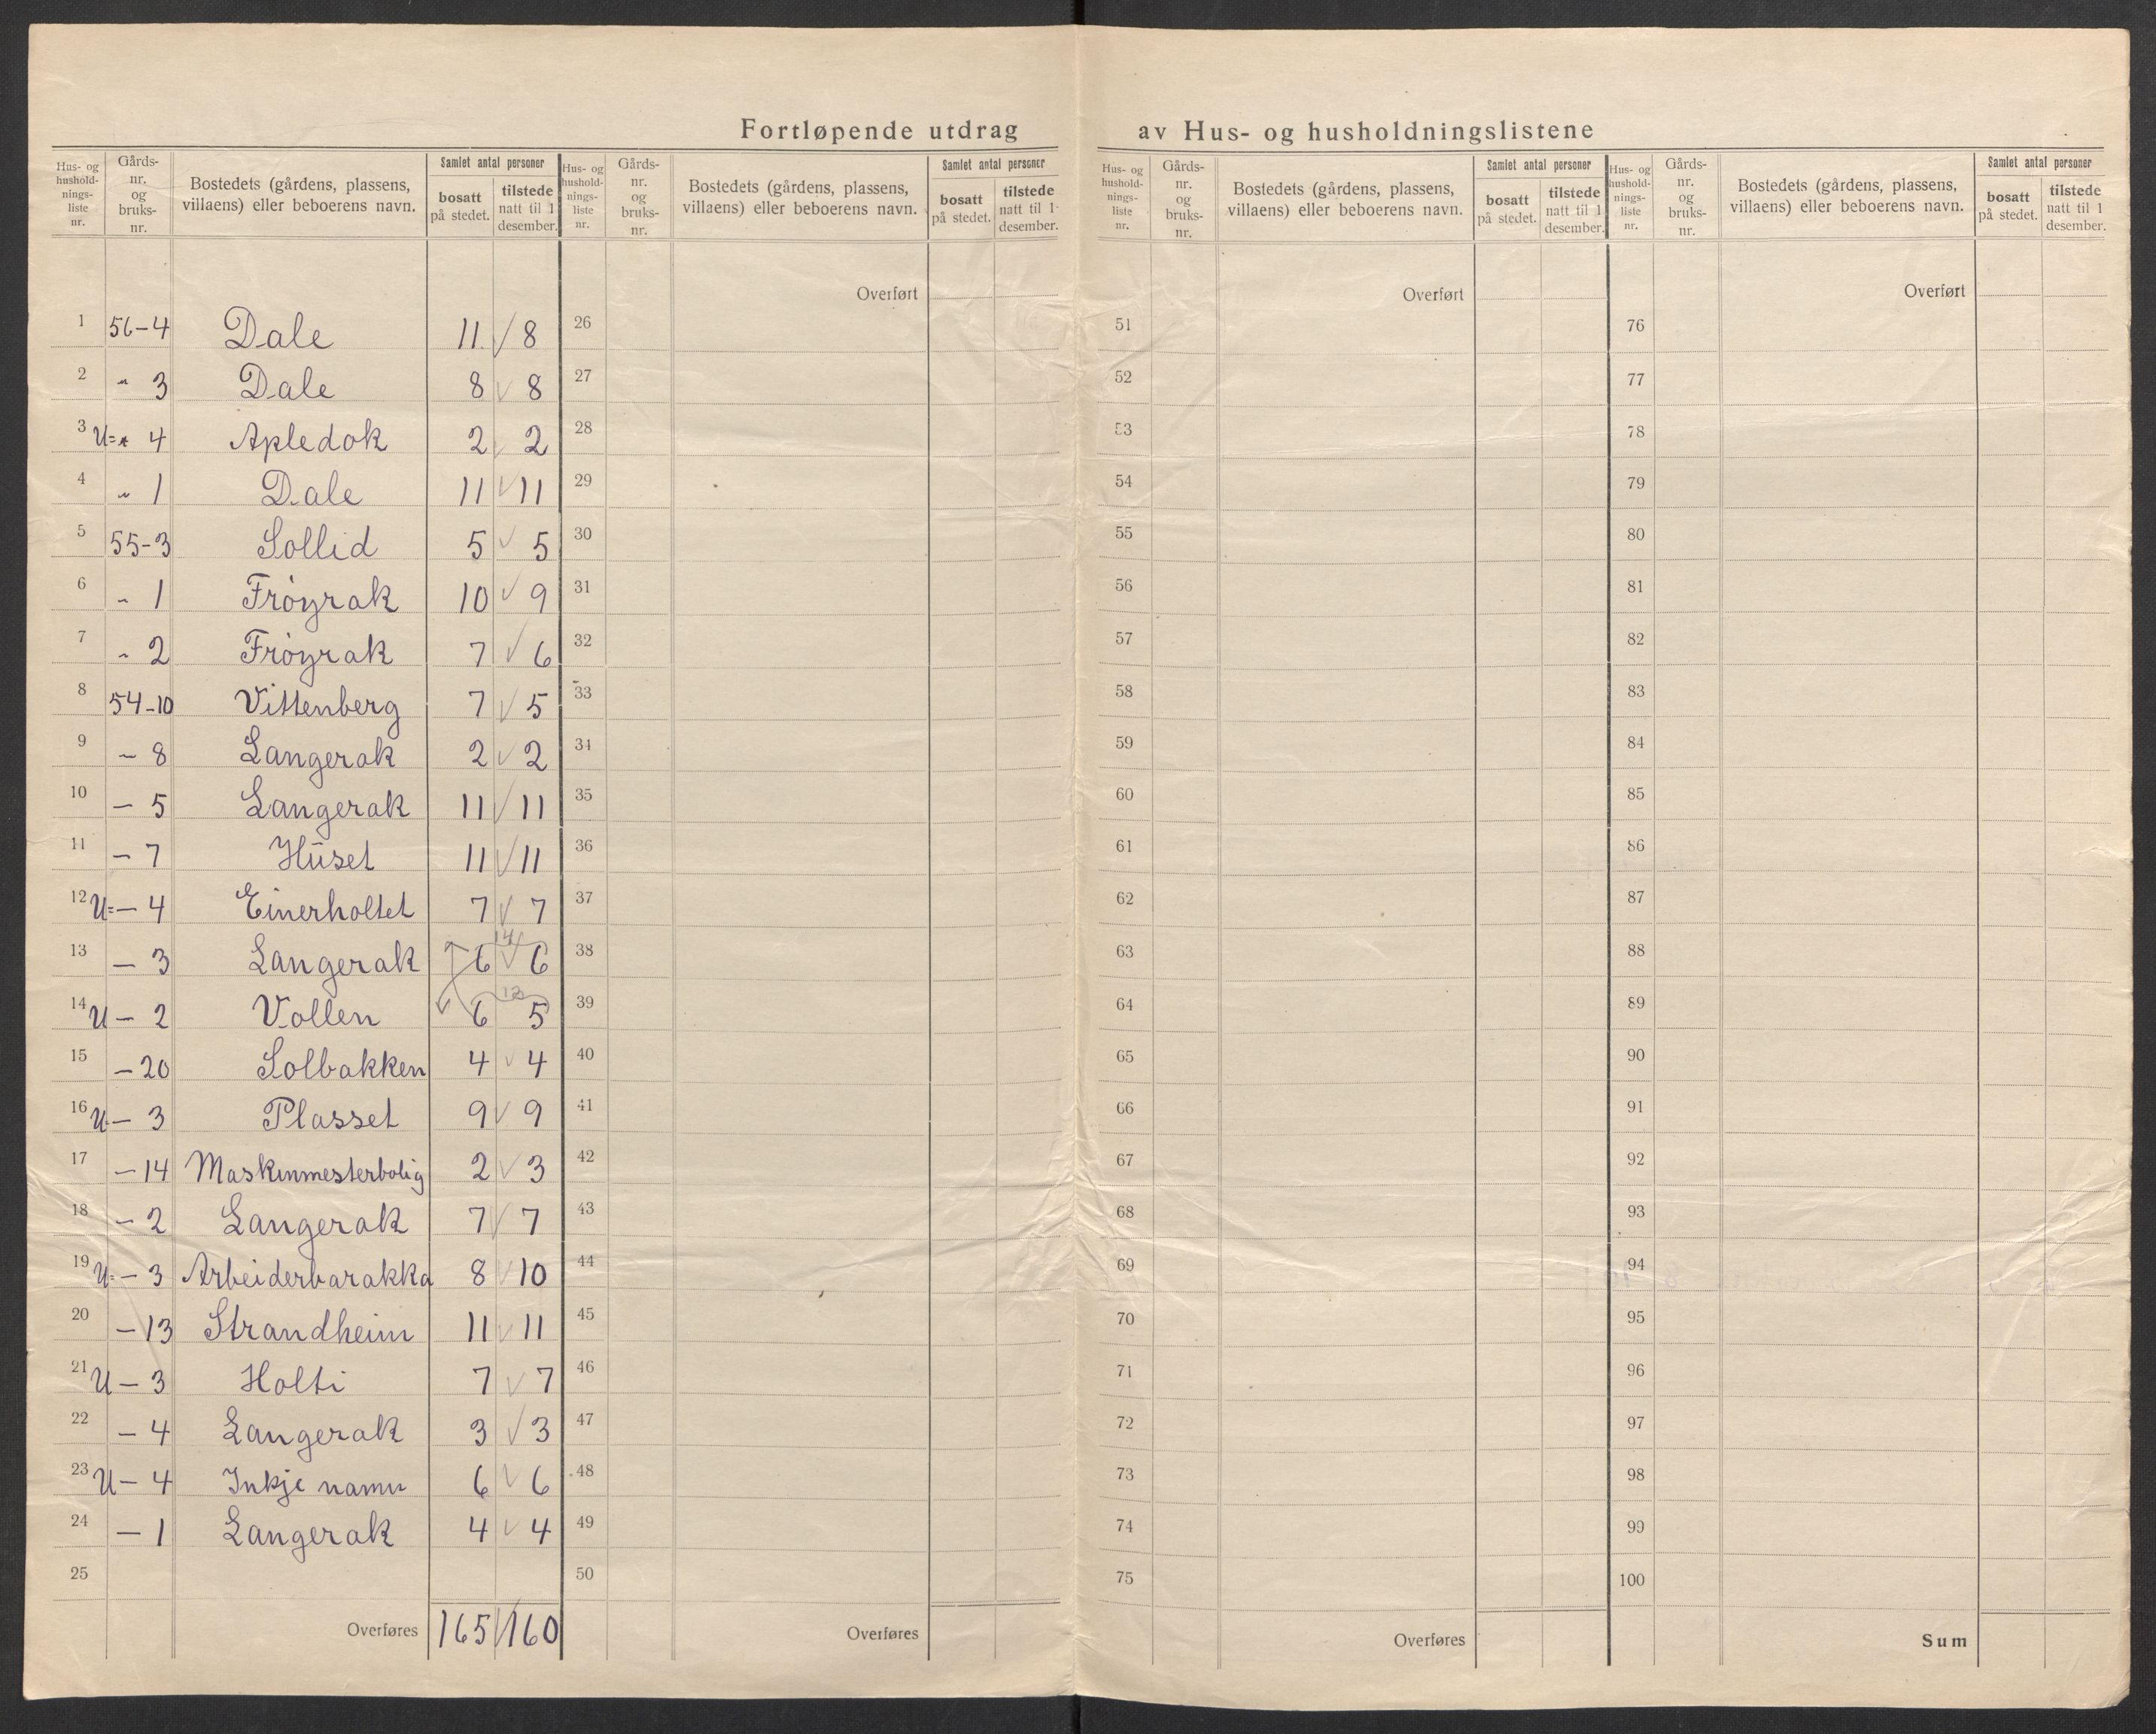 Fortløpende utdrag av Hus- og husholdningslistene
Hus- og hushold- nings- liste nr.
Gårds- nr. og bruks- nr.
Bostedets (gårdens, plassens, villaens) eller beboerens navn.
Samlet antal personer
bosatt på stedet.
tilstede natt til 1 desember.
Hus- og hushold- nings- liste nr.
Gårds- nr. og bruks- nr.
Bostedets (gårdens, plassens, villaens) eller beboerens navn.
Samlet antal personer
bosatt på stedet.
tilstede natt til 1 desember.
Hus- og hushold- nings- liste nr.
Gårds- nr. og bruks- nr.
Bostedets (gårdens, plassens, villaens) eller beboerens navn.
Samlet antal personer
bosatt på stedet.
tilstede natt til 1 desember.
Hus- og hushold- nings- liste nr.
Gårds- nr. og bruks- nr.
Bostedets (gårdens, plassens, villaens) eller beboerens navn.
Samlet antal personer
bosatt på stedet.
tilstede natt til 1 desember.
Overført Overført Overført
1 56-4 Dale 11 8 26 51 76
2 " 3 Dale 8 8 27 52 77
3 U= " 4 Apledok 2 2 28 53 78
4 " 1 Dale 11 11 29 54 79
5 55-3 Sollid 5 5 30 55 80
6 " 1 Frøyrak 10 9 31 56 81
7 " 2 Frøyrak 7 6 32 57 82
8 54-10 Vittenberg 7 5 33 58 83
9 - 8 Langerak 2 2 34 59 84
10 - 5 Langerak 11 11 35 60 85
11 - 7 Huset 11 11 36 61 86
12 U= - 4 Einerholtet 7 7 37 62 87
14
13 - 3 Langerak 6 6 38 63 88
13
14 U - 2 Vollen 6 5 39 64 89
15 - 20 Solbakken 4 4 40 65 90
16 U - 3 Plasset 9 9 41 66 91
17 - 14 Maskinmesterbolig 2 3 42 67 92
18 - 2 Langerak 7 7 43 68 93
19 U= - 3 Arbeiderbarakka 8 10 44 69 94
20 - 13 Strandheim 11 11 45 70 95
21 U - 3 Holti 7 7 46 71 96
22 - 4 Langerak 3 3 47 72 97
23 U - 4 Inkje namn 6 6 48 73 98
24 - 1 Langerak 4 4 49 74 99
25 50 75 100
Overføres 165 160 Overføres Overføres Sum